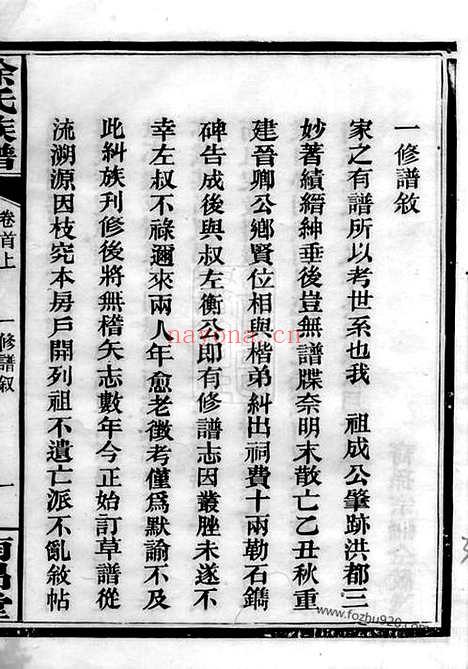 一修譜敘
家之有譜所以考世系也我　祖成公肇跡洪都三
妙著績縉紳垂後豈無譜牒奈明末散亡乙丑秋重
建晉卿公鄉賢位相與楷弟糾出祠費十兩勒石鐫
碑告成後與叔左衡公即有修譜志因叢脞未遂不
幸左叔不祿邇來兩人年愈老徵考僅爲默諭不及
此糾族刊修後將無稽矢志數年今正始訂草譜從
流溯源因枝究本房戶開列祖不遺亡派不亂敘帖
氏族譜
卷首上
一修譜敘
一
堂
nayona.cn
www.fozhu920.com